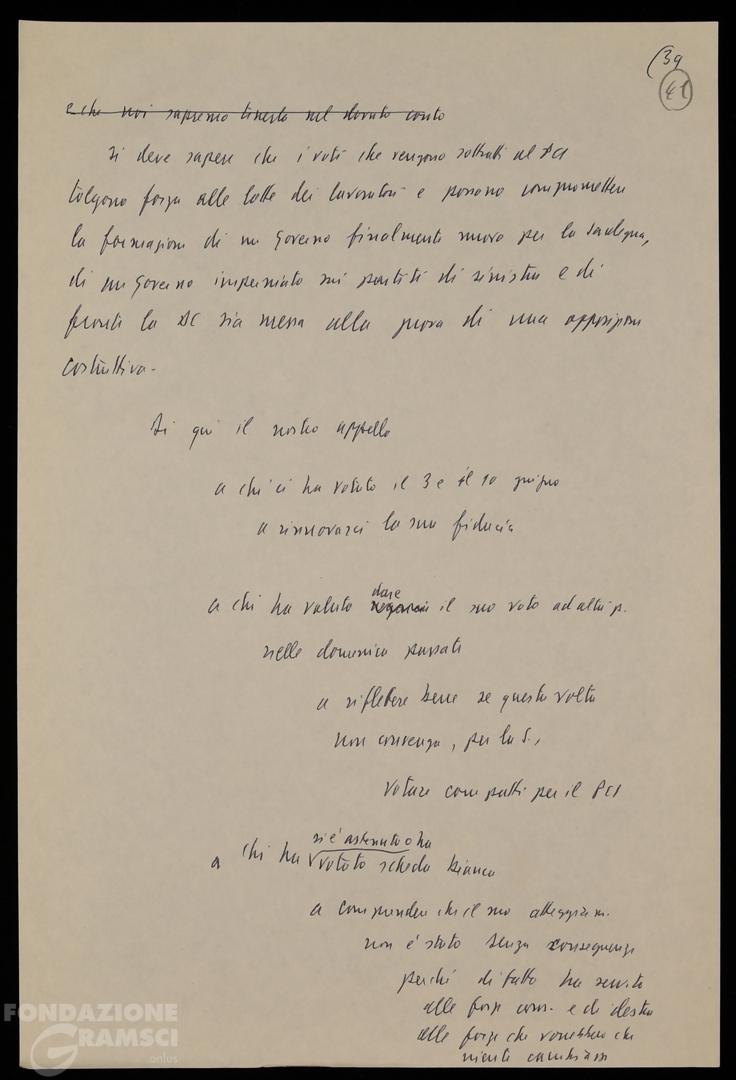 (39
41
e che noi sapremo tenerlo nel dovuto conto
Si deve sapere che i voti che vengono sottratti al PCI
tolgono forza alle lotte dei lavoratori e possono compromettere
la formazione di un governo finalmente nuovo per la Sardegna,
di un governo imperniato sui partiti di sinistra e di
fronte la DC sia messa alla prova di una opposizione
costruttiva.
Di qui il nostro appello
a chi ci ha votato il 3 e il 10 giugno
a rinnovarci la sua fiducia
a chi ha voluto dare il suo voto ad altri p.
nelle domeniche passate
a riflettere bene se questa volta
non convenga, per la S.,
votare compatti per il PCI
a chi ha si è astenuto o ha votato scheda bianca
a comprendere che il suo atteggiam.
non è stato senza conseguenze
perché di fatto ha servito
alle forze cons. e di destra
alle forze che vorrebbero che
niente cambiasse
FONDAZIONE
GRAMSCI
onlus